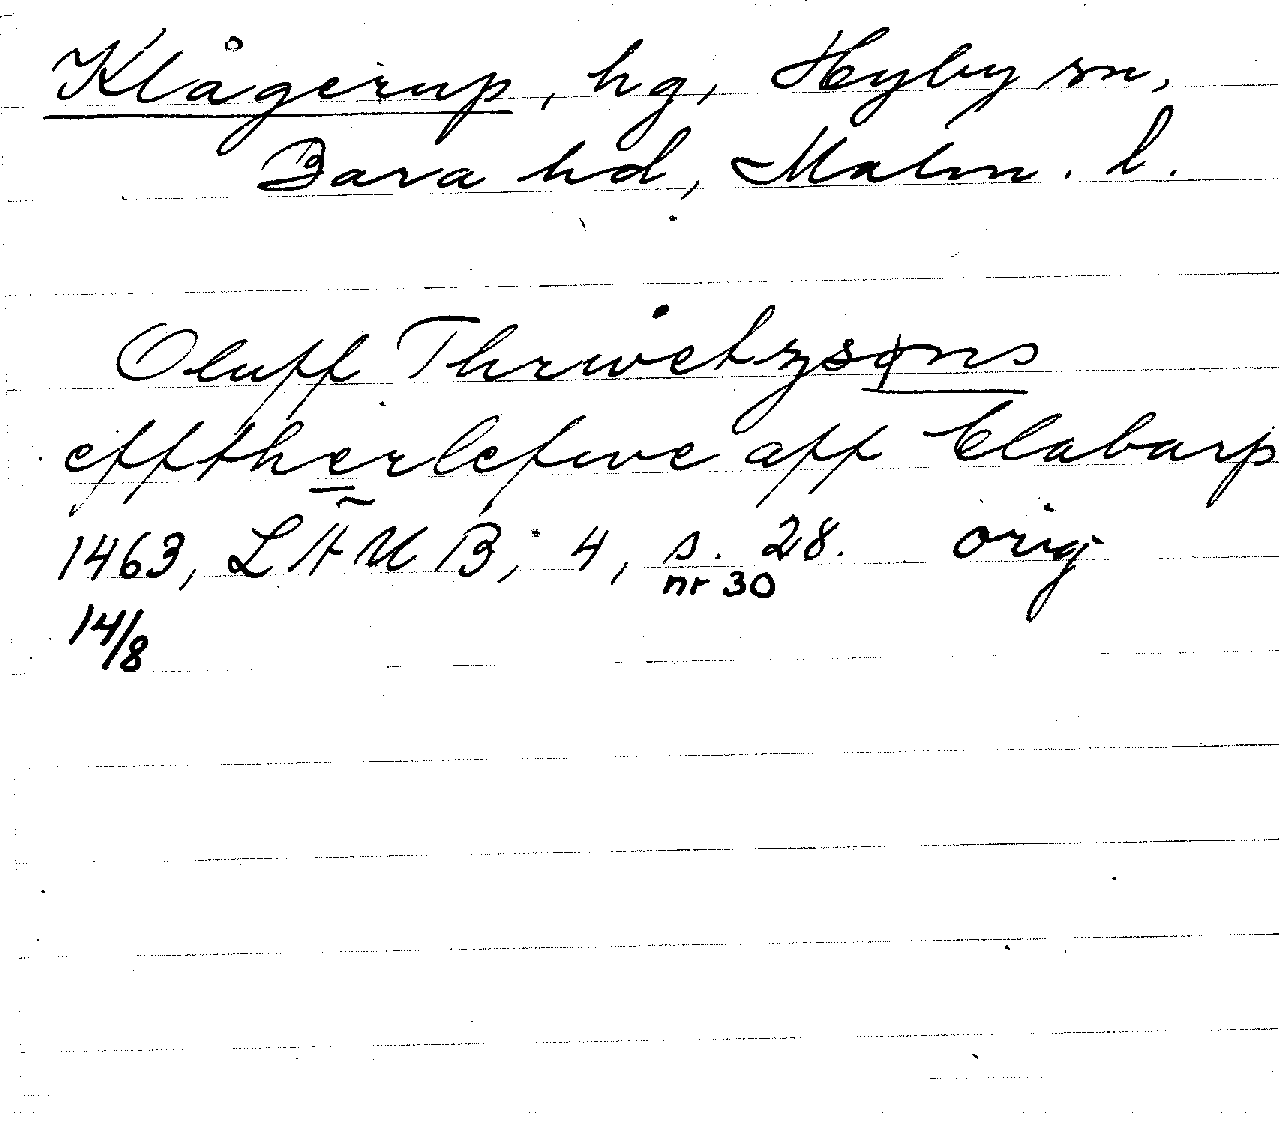 Klågerup, hg, Hyby sn,
Bara hd, Malm. l.
Oluff Thrwetzsøns
efftherlefwe aff Clabarp
1463, LÄUB, 4, s. 28. orig
nr 30
14/8